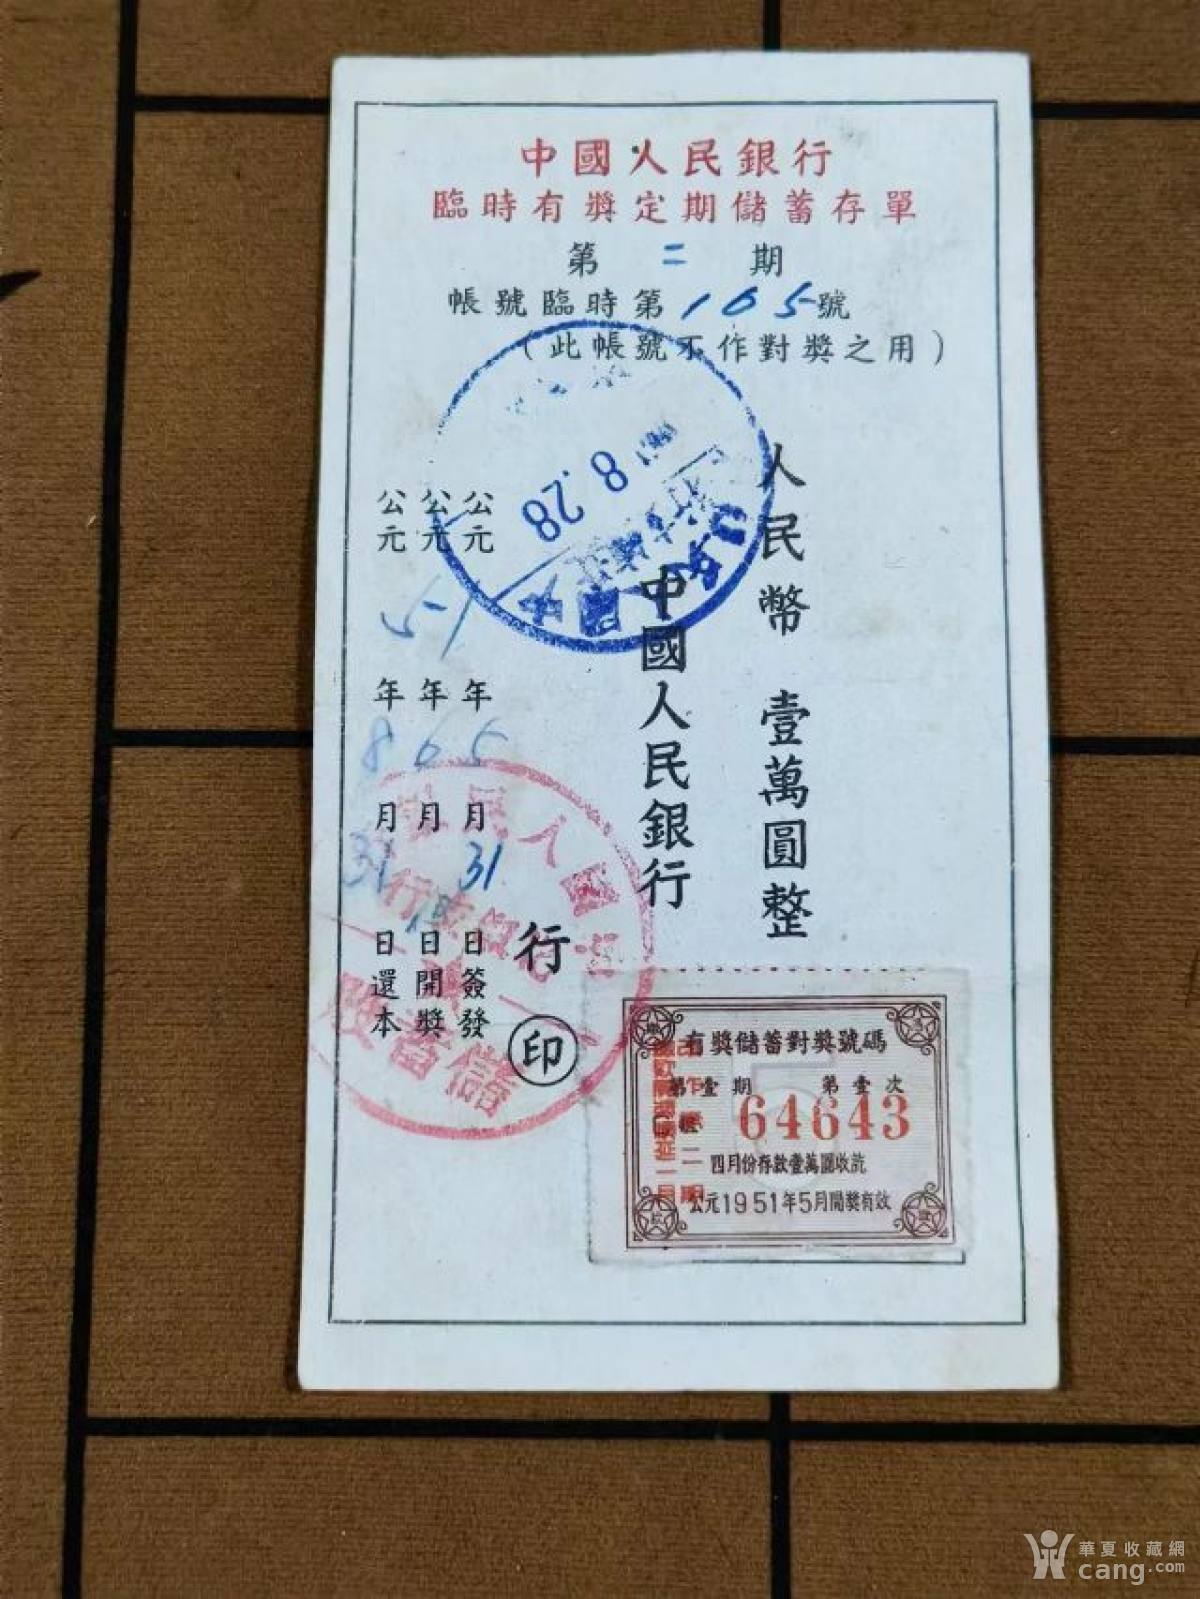 中國人民銀行
臨時有獎定期儲蓄存單
第二期
帳號臨時第105號
(此帳號不作對獎之用)
人民幣壹萬圓整
中國人民銀行
行印
公元 年5月31日簽發
公元 年6月 日開獎
公元51年8月31日還本
8.28
儲蓄股
有獎儲蓄對獎號碼
第壹期 第壹次
64643
四月份存款壹萬圓收訖
公元1951年5月開獎有效
華夏收藏網
cang.com